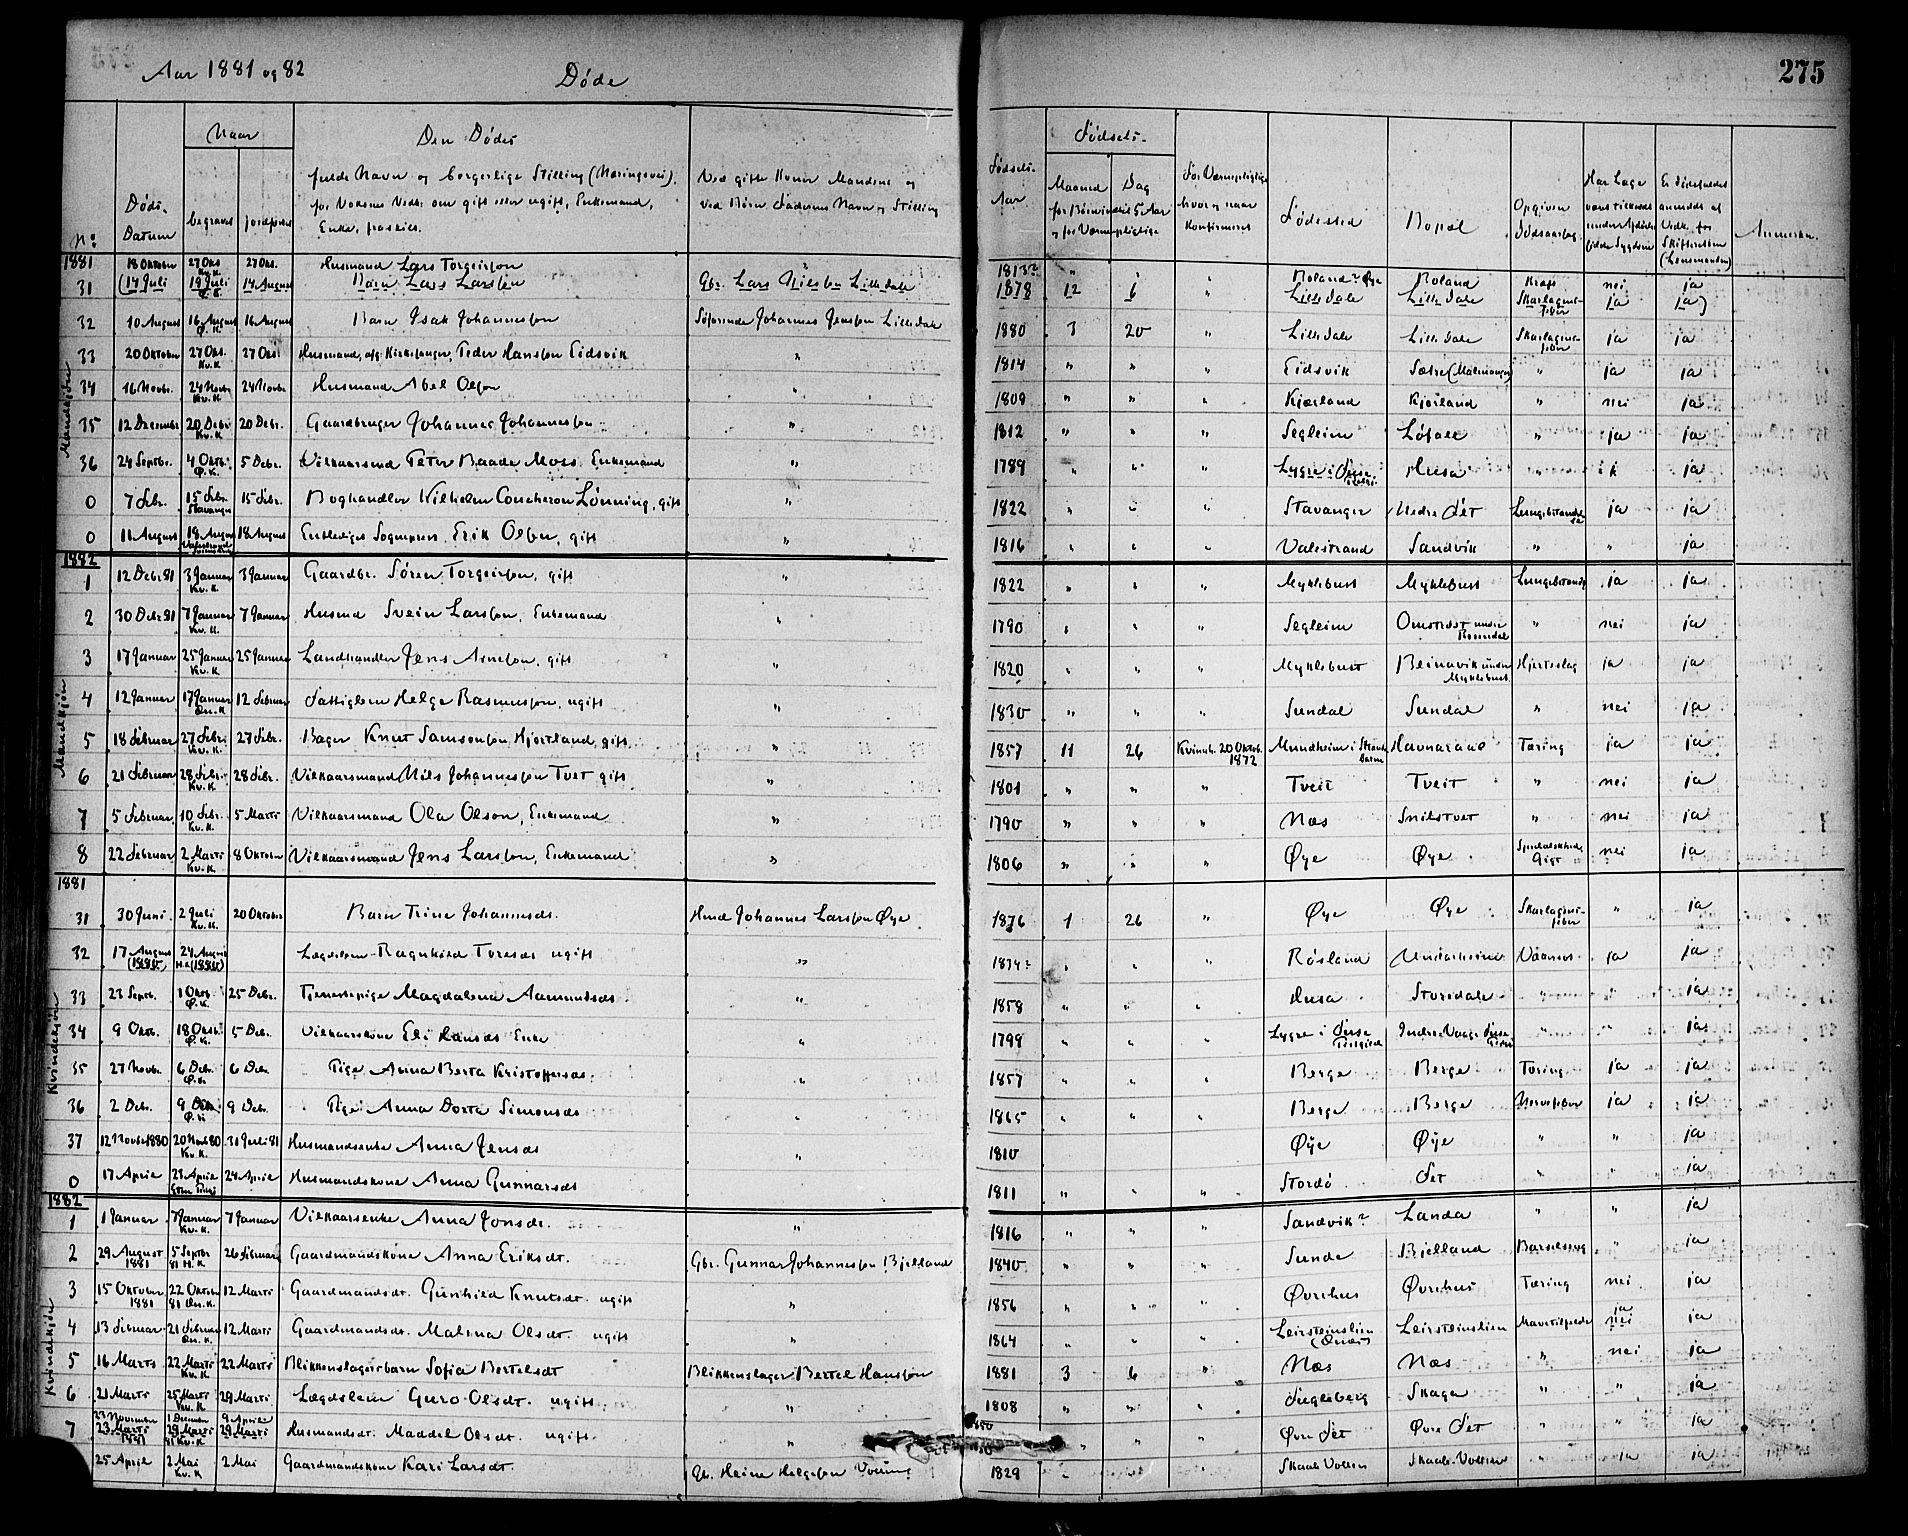 275
Aar 1881 og 82
Døde
Naar
Den Dødes
Fødsels-
Nº:
Døds-
Datum
begravet
jordfæstet
fulde Navn og borgerlige Stilling (Næringsvei),
for Voksne Vedk: om gift eller ugift, Enkemand,
Enke, fraskilt.
Ved gifte Koner Mandens og
ved Børn Faderens Navn og Stilling
Fødsels-
Aar
Maaned
Dag
for Børn indtil 5 Aar
og for Værnepligtige
For Værnepligtige
hvor og naar
Konfirmeret
Fødested
Bopæl
Opgiven
Dødsaarsag
Har Læge
været tilkaldt
under Afdødes
sidste Sygdom
Er Dødsfaldet
anmeldt af
Vedk. for
Skifteretten
(Lensmanden)
Anmerkn.
Mandkjøn
1881 18 Oktober 27 Okt. Kv.K. 27 Okt. Husmand Lars Torgeirsøn " 1813? " " " Roland? Øye Roland Kræft nei ja
31 (14 Juli 19 Juli Ø.K. 14 August Barn Lars Larsøn Gbr. Lars Nilsøn Lilledale 1878 12 6 " Lilledale Lilledale Skarlagens-feber ja ja)
32 10 August 16 August Ø.K. 16 August Barn Isak Johannesøn Søfarende Johannes Jensøn Lilledale 1880 3 20 " Lilledale Lilledale Skarlagens-feber ja ja
33 20 Oktober 27 Okt. Kv.K. 27 Okt. Husmand, afg. Kirkesanger, Peder Hansøn Eidsvik " 1814 " " " Eidsvik Sætre (Malmanger) " ja ja
34 16 Novbr. 24 Novbr Kv.K 24 Novbr Husmand Abel Olsøn " 1809 " " " Kjærland Kjærland " nei ja
35 12 Decembr 20 Debr Kv.K 20 Debr. Gaardbruger Johannes Johannessøn " 1812 " " " Segleim Løfall " ja ja
36 24 Septbr. 4 Oktb. Ø.K. 5 Debr. Vilkaarsmd Peter Baade Moss, Enkemand " 1789 " " " Lygre i Fuse Husa " ja
0 7 Febr. 15 Febr. Stavanger 15 Febr. Boghandler Wilhelm Concheron Lønning, gift " 1822 " " " Stavanger Nedre Sæt Lungebetændelse ja ja
0 11 August 18 August 18 August Entlediget Sogneprest Erik Olsen, gift " 1816 " " " Valestrand Sandvik " " ja
1882
Mandkjøn
1 12 Debr. 81 3 Januar Kv.K. 3 Januar Gaardbr. Søren Torgeirsøn, gift " 1822 " " " Myklebust Myklebust Lungebetænd. ja ja
2 30 Debr. 81 7 Januar Kv.K. 7 Januar Husmd Svein Larsøn, Enkemand " 1790 " " " Segleim Omstedt under Rosendal " nei ja
3 17 Januar 25 Januar Kv.K 25 Januar Landhandler Jens Arnesøn, gift " 1820 " " " Myklebust Beinavik under Myklebust Hjerteslag ja ja
4 12 Januar 17 Januar Øn.K 12 Februar Fattiglem Helge Rasmussøn, ugift " 1830 " " " Sundal Sundal " nei ja
5 18 Februar 27 Febr. Kv.K. 27 Febr. Bager Knut Samsonsøn Hjortland, gift " 1857 11 26 Kvinnh. 20 Oktob. 1872 Mundheim i Strandebarm Havnaraas Tæring ja ja
6 21 Februar 28 Febr. Kv.K. 28 Febr. Vilkaarsmand Nils Johannesøn Tvet gift " 1801 " " " Tveit Tveit " nei ja
7 5 Februar 10 Febr. Kv.K. 5 Marts Vilkaarsmand Ola Olson, Enkemand " 1790 " " " Næs Snilstvet " nei ja
8 22 Februar 2 Marts Kv.K. 8 Oktober Vilkaarsmand Jens Larssøn, Enkemand " 1806 " " " Øye Øye Gigt nei ja
1881
Kvindekjøn
31 30 Juni 2 Juli Kv.K. 20 Oktober Barn Trine Johannesdr. Hmd Johannes Larssøn Øye 1876 1 26 " Øye Øye Skarlagens-feber " ja
32 17 August (1880) 24 August (1880) Lægdslem Ragnhild Toresdr ugift " 1834? " " " Røsland ja ja
33 23 Septb. 1 Oktb. Ø.K. 25 Debr. Tjenestepige Magdalena Aamundsdr. " 1858 " " " Husa Storedale " " ja
34 9 Oktb. 18 Oktb. Ø.K. 5 Deb. Vilkaarskone Eli Hansdr Enke " 1799 " " " Lygre i Fuse Indre Vaage Fuse " " ja
35 27 Novbr. 6 Debr. Ø.K. 6 Debr. Pige Anna Berta Kristoffersdr. " 1857 " " " Berge Berge Tæring ja ja
36 2 Debr. 9 Debr. Ø.K 9 Debr. Pige Anna Dorta Simonsdr " 1865 " " " Berge Berge Nervefeber ja ja
37 12 Novbr 1880 20 Novb 80 Kv.K. 31 Juli 81 Husmandsenke Anna Jensdr " 1810 Øye Øye " " ja
0 17 April 23 April 24 April Husmandskone Anna Gunnarsdr 1811 " " " Stordø Sæt " " ja
1882
Kvindekjøn
1 1 Januar 7 Januar Kv.K. 7 Januar Vilkaarsenke Anna Jonsdr. " 1816 " " " Sandvik? Landa " " ja
2 29 August 1881 5 Septbr 81 H.K 26 Februar Gaardmandskone Anna Eriksdt. Gbr. Gunnar Johannesøn Bjelland 1840 " " " Sunde Bjelland Barselseng " ja
3 15 Oktober 1881 22 Oktober 81 Øn.K. 12 Marts Gaardmandsdt. Gunhild Knutsdt. ugift " 1856 " " " Øvrehus Øvrehus Tæring nei ja
4 13 Februar 21 Februar Øn.K. 12 Marts Gaardmandsdt. Malina Olsdt. ugift " 1864 " " " Leirsteinslien Leirsteinslien ja nei ja
5 16 Marts 22 Marts Kv.K 22 Marts Blikkenslagerbarn Sofia Bertelsdt Blikkenslager Bertel Hanssøn 1881 3 6 " Næs Næs " nei ja
6 21 Marts 25 Marts Kv.K 29 Marts Lægdslem Guro Olsdt. ugift " 1808 " " " Fugleberg Skage " " ja
7 23 November 23 Marts 1881 1 December 29 Marts 81 Kv.K 9 April 29 Marts Husmandsdt. Maddel Olsdt. ugift " " " " Øvre Sæt Øvre Sæt " " ja
25 April 2 Mai Kv.K 2 Mai Gaardmandskone Kari Larsdt. Gb. Heine Helgesøn 1829 " " " " ja ja